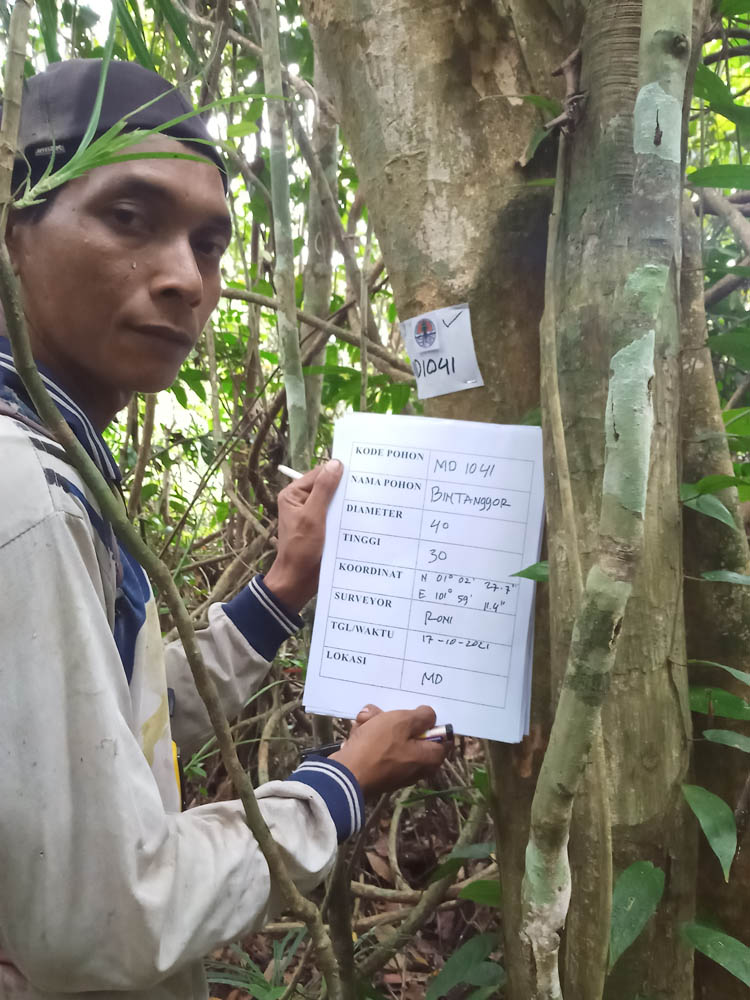 D1041
KODE POHON MD 1041
NAMA POHON BINTANGGOR
DIAMETER 40
TINGGI 30
KOORDINAT N 01° 02' 27.7"
E 101° 59' 11.4"
SURVEYOR RONI
TGL/WAKTU 17-10-2021
LOKASI MD